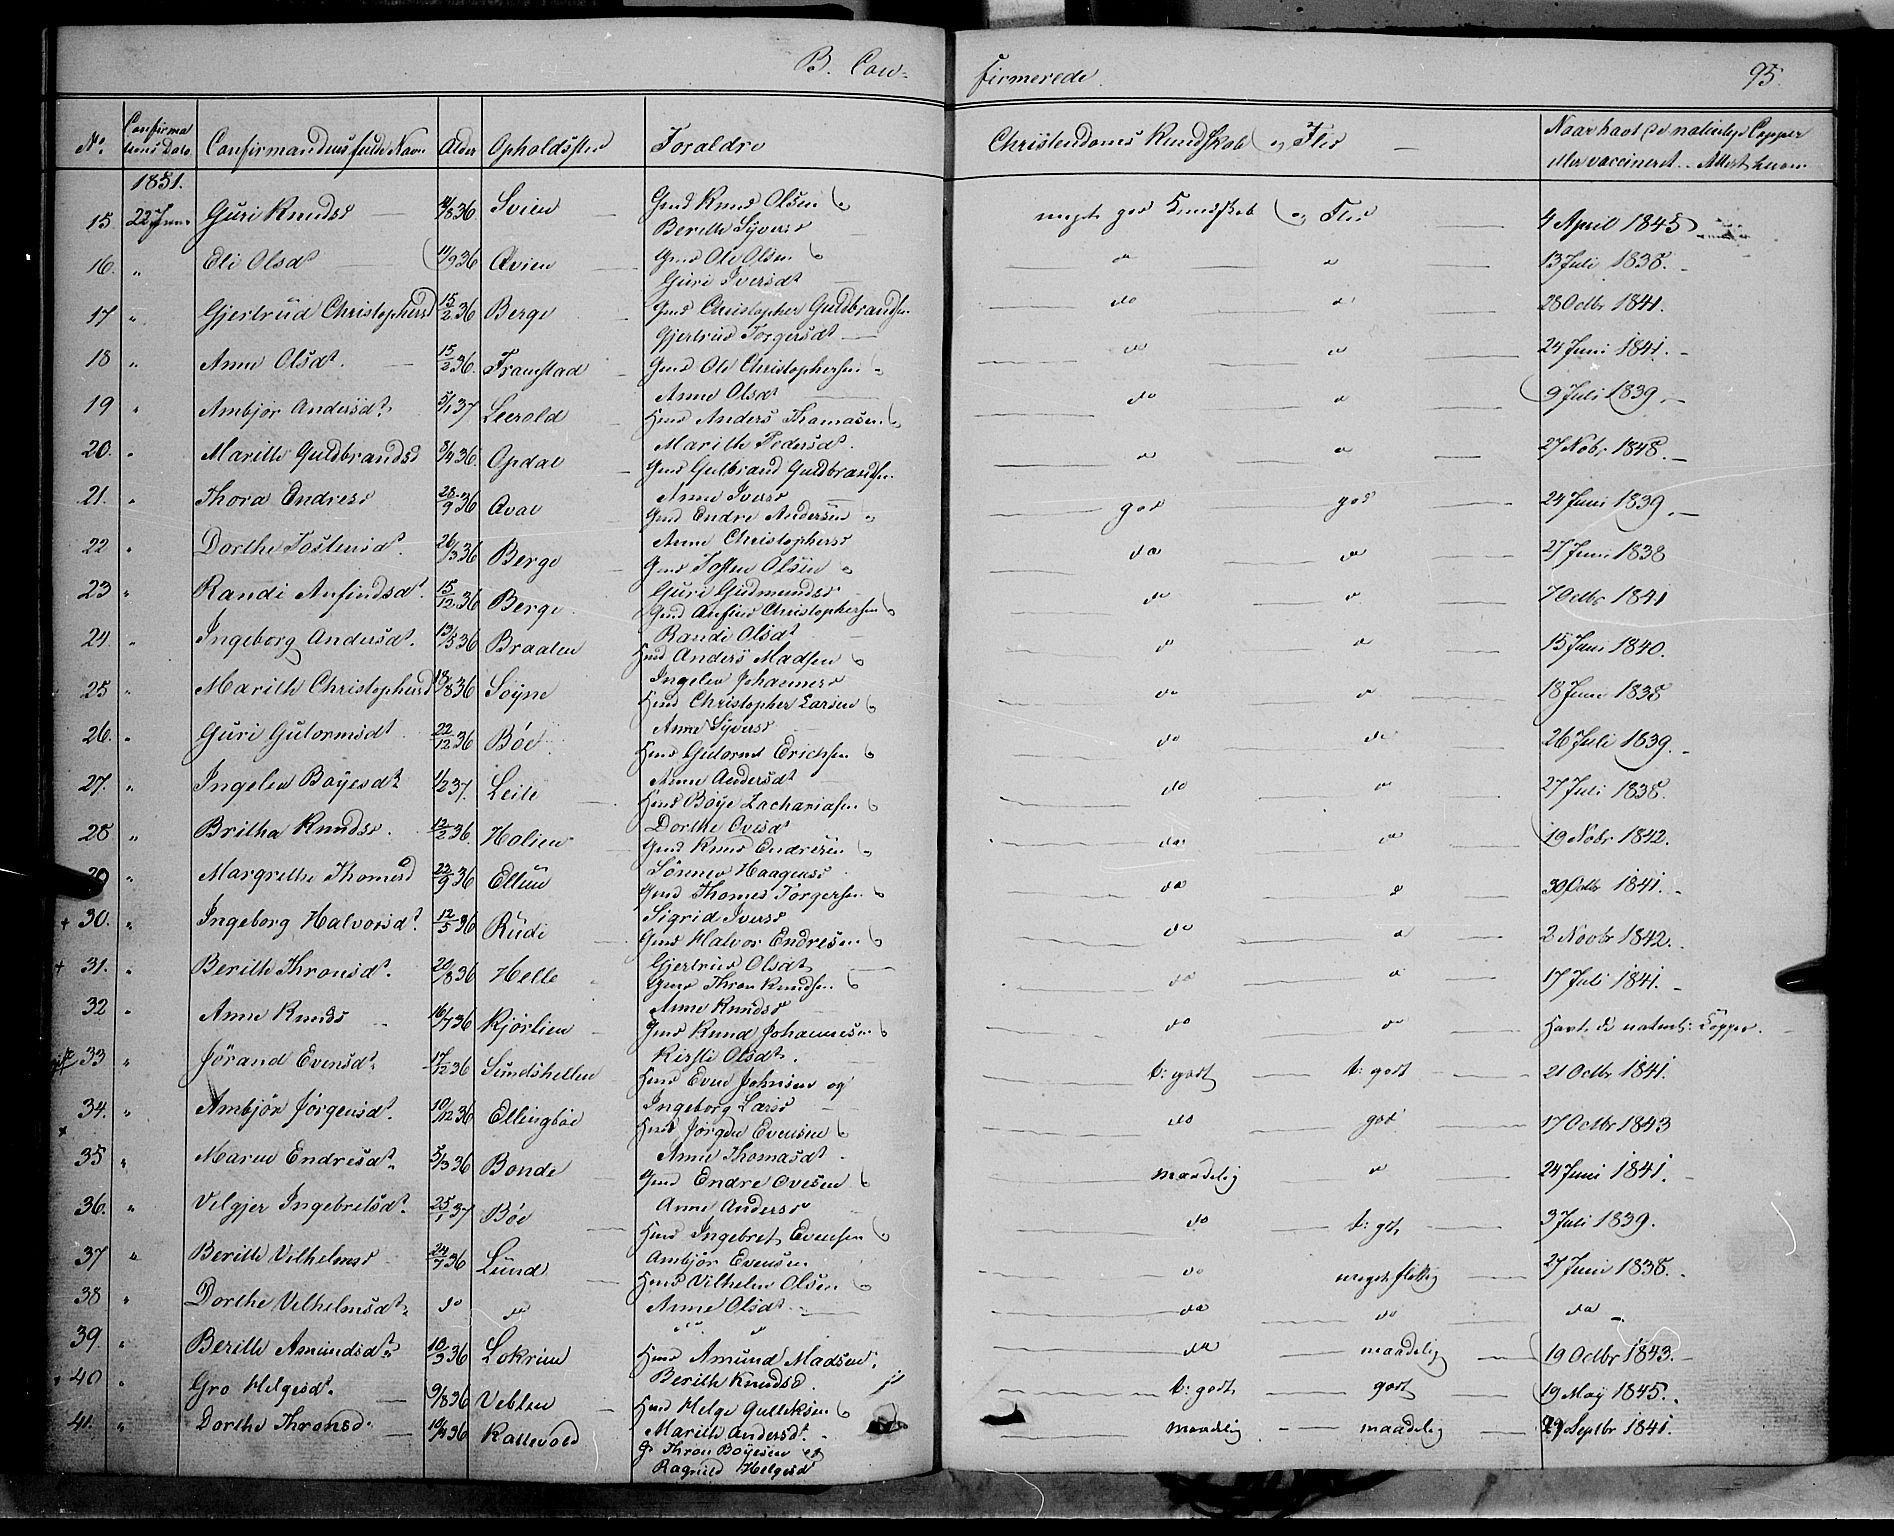 B. Con-
firmerede.
95.
No. Confirmations Dato Confirmandens fulde Navn Alder Opholdssted Forældre Christendoms Kundskab og Flid Naar havt de naturlige Copper
eller vaccineret. Attest herom
1851.
15. 22 Juni Guri Knudsd 36 Svien Gmd Knud Olsen &
Berithe Syversd meget god Kundskab og Flid 4 April 1845
16. " Eli Olsdt 11/9 36 Qvien Gmd Ole Olsen &
Guri Iversdt do do 13 Juli 1838.
17 " Gjertrud Christophersd 15/2 36 Berge Gmd Christopher Guldbrandsen
Gjertrud Torgersdt do do 28 Octbr 1841.
18 " Anne Olsdt. 15/2 36. Framstad Gmd Ole Christophersen &
Anne Olsdt do do 24 Juni 1841.
19 " Ambjør Andersdt. 5/1 37 Leerold Hmd Anders Thomasen &
Marithe Pedersdt. do do 9 Juli 1839.
20. " Marithe Guldbrandsd 8/4 36. Opdal Gmd Gulbrand Guldbrandsen
Anne Iversd do do 27 Nobr 1848.
21. " Thora Endresd 28/9 36 Qvale Gmd Endre Andersen &
Anne Christophersd god god 24 Juni 1839.
22 " Dorthe Tostensdt. 26/3 36 Berge Gmd Tosten Olsen &
Guri Gudmundsd do do 27 Juni 1838
23 " Randi Anfindsdt. 15/12 36 Berge Gmd Anfind Christophersen &
Randi Olsdt do do 7 Octbr 1841
24. " Ingeborg Andersdt. 13/5 36 Braaten Hmd Anders Madsen &
Ingelev Johannesd do do 15 Juni 1840.
25 " Marithe Christophersd 18/8 36 Søyne Hmd Christopher Larsen &
Anne Syversd do do 18 Juni 1838
26. " Guri Gutormsdt 22/12 36 Bøe Hmd Gutorm Erichsen &
Anne Andersdt do do 26 Juli 1839.
27. " Ingelev Bøyesdt 1/2 37. Leite Hmd Bøye Zachariasen &
Dorthe Ovesdt do do 27 Juli 1838.
28 " Britha Knudsd. 12/2 36. Holien Gmd Knud Endresen &
Sønnev Haagensd do do 19 Nobr 1842.
29 " Margrethe Thomesd 22/9 36 Ellun Gmd Thomes Torgersen &
Sigrid Iversd do do 30 Octbr 1841.
+ 30. " Ingeborg Halvorsdt. 12/5 36 Rudi Gmd Halvor Endresen &
Gjertrud Olsdt do do 2 Novbr 1842.
+ 31. " Berithe Thronsdt. 20/8 36 Helle Gmd Thron Knudsen &
Anne Knudsd do do 17 Juli 1841.
32 " Anne Knudsd 16/7 36 Kjørlien Gmd Knud Johannesen &
Kirsti Olsdt. do do Havt de naturl: Copper.
33 " Jørand Evensdt. 17/12 36 Sundshellen Hmd Even Johnsen og
Ingeborg Larsd t: godt t: godt 21 Octbr 1841.
34. " Ambjør Jørgensdt. 10/12 36 Ellingbøe Hmd Jørgen Evensen &
Anne Thomasdt. do god 17 Octbr 1843
35 " Maren Endresdt. 5/3 36 Bonde Gmd Endre Ovesen &
Anne Andersd maadelig do 24 Juni 1841.
36. " Velgjer Ingebretsdt. 25/1 37 Bøe Hmd Ingebret Evensen &
Ambjør Evensen do t: godt 3 Juli 1839.
37 " Berithe Vilhelmsd 24/7 36 Lund Hmd Vilhelm Olsen &
Anne Olsdt. do meget flittig 27 Juni 1838.
38 " Dorthe Vilhelmsdt. do do do do do do do
39. " Berithe Amundsdt. 10/3 36 Lokrien Hmd Amund Madsen &
Berith Knudsd. do maadelig 19 Octbr 1843.
40 " Gro Helgesdt. 9/8 36 Veblen Hmd Helge Gulleksen &
Marith Andersdt. t: godt godt 19 May 1845.
41. " Dorthe Thronsd. 19/4 36 Kattevold G: Thron Bøyesen og
Ragnild Helgesd maadelig maadelig 29 Septbr 1841.